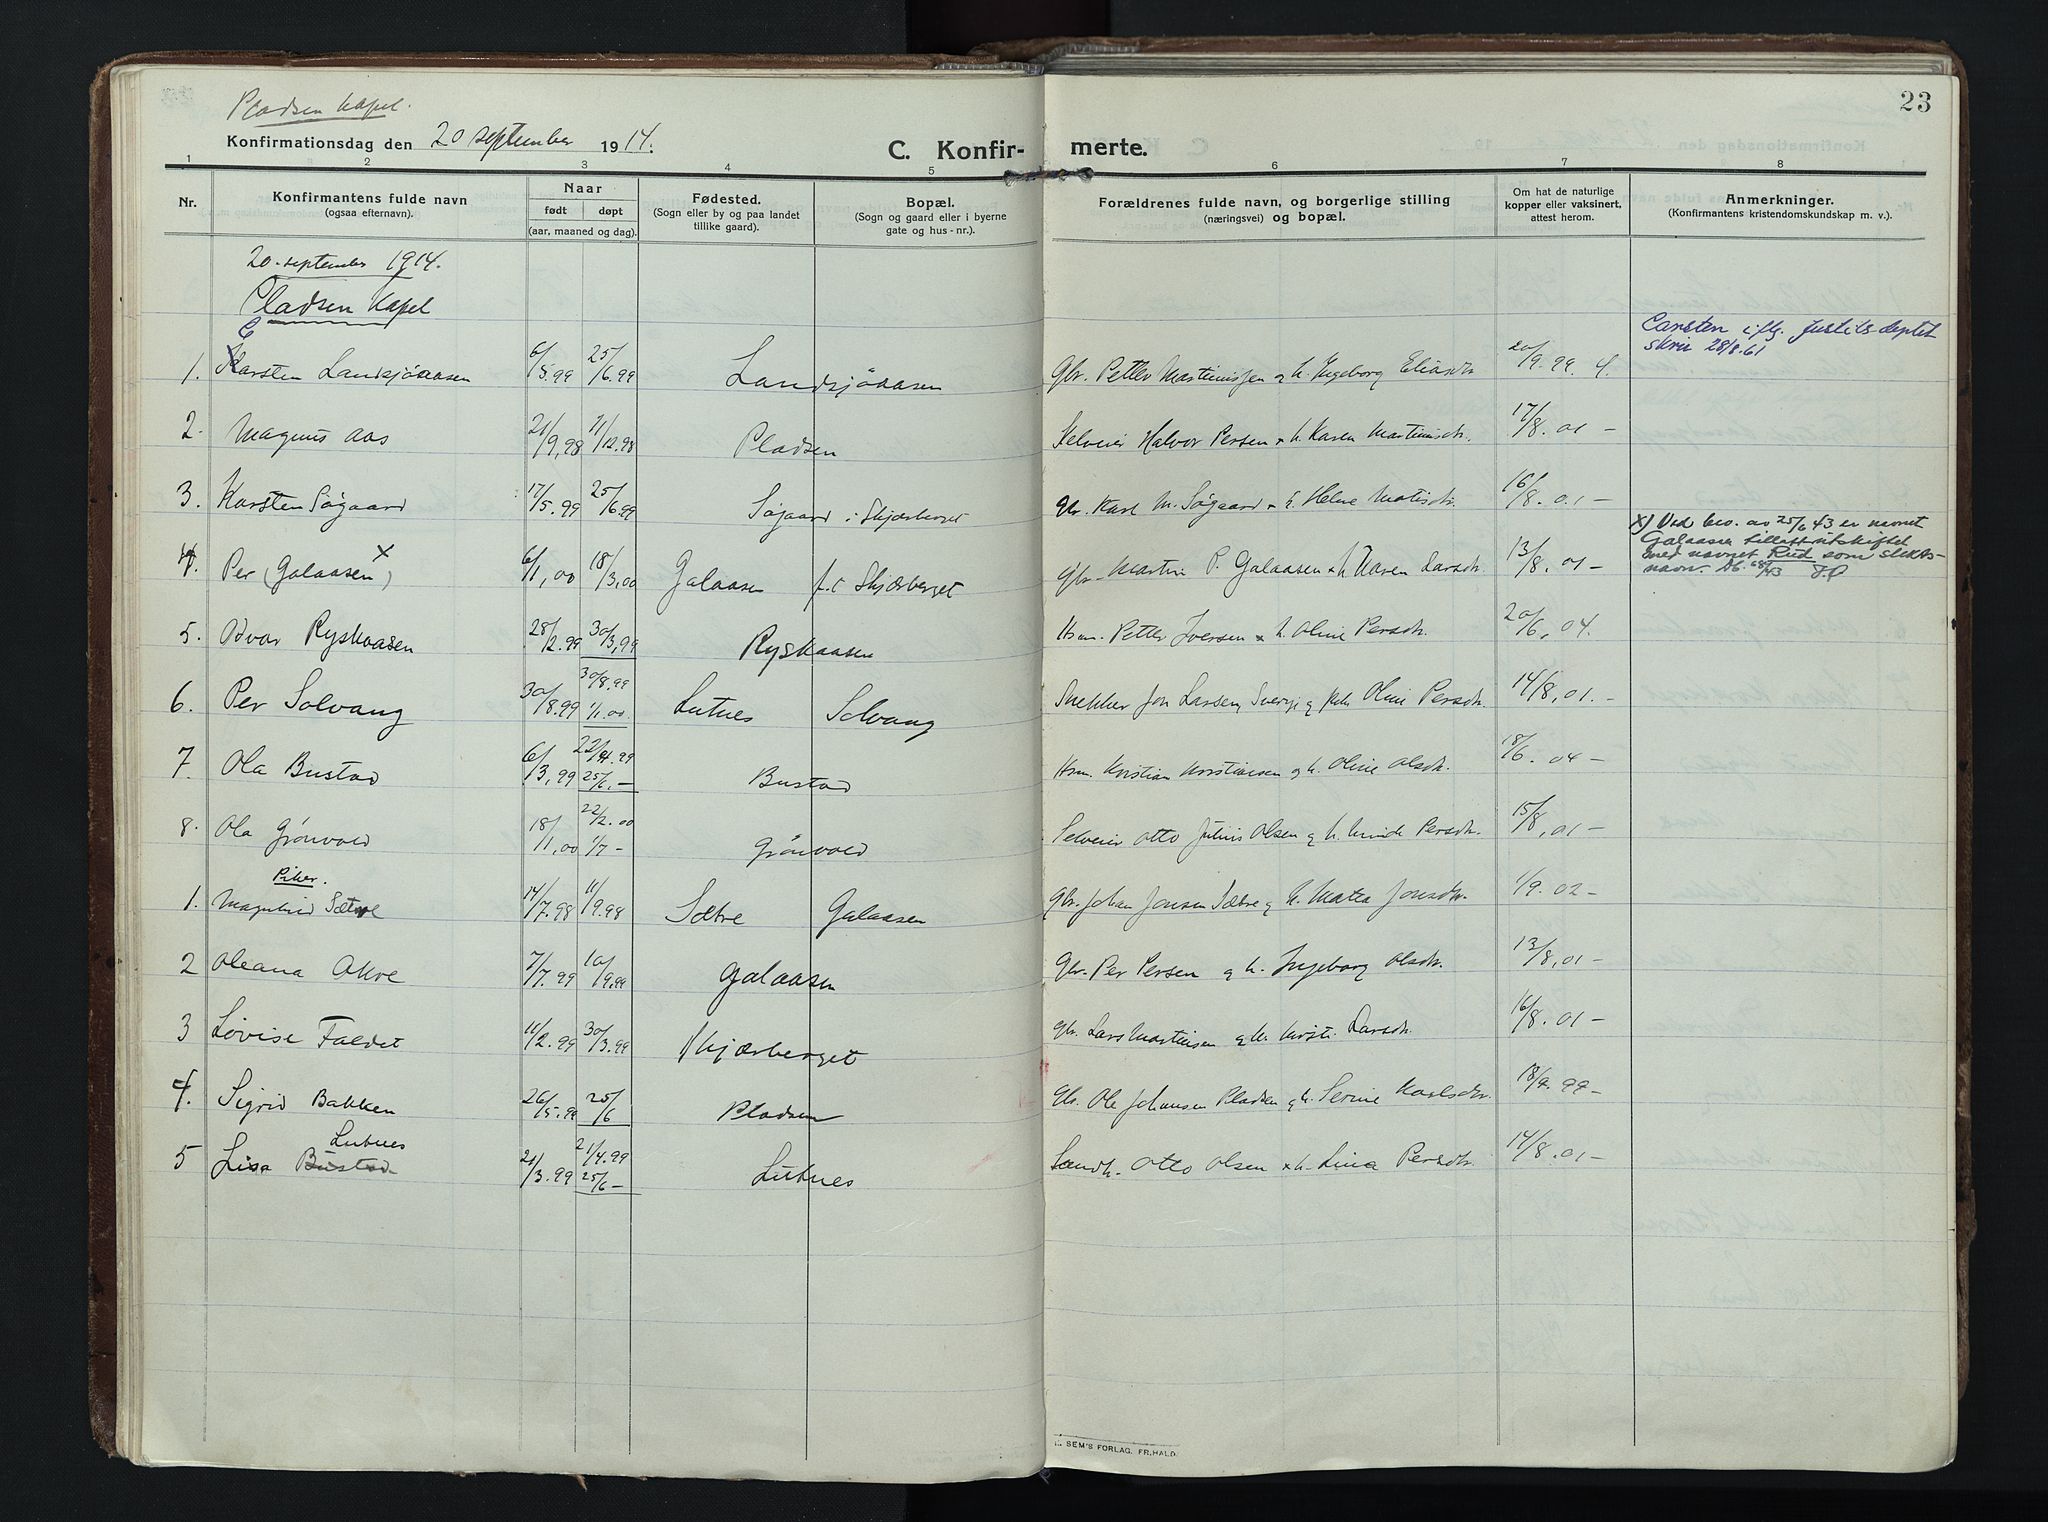 Pladsen kapel.
23
Konfirmationsdag den 20 september 1914.
C. Konfir- merte.
1 2 3 4 5 6 7 8
Nr.
Konfirmantens fulde navn
(ogsaa efternavn).
Naar
født døpt
(aar, maaned og dag).
Fødested.
(Sogn eller by og paa landet
tillike gaard).
Bopæl.
(Sogn og gaard eller i byerne
gate og hus-nr.).
Forældrenes fulde navn, og borgerlige stilling
(næringsvei) og bopæl.
Om hat de naturlige
kopper eller vaksinert,
attest herom.
Anmerkninger.
(Konfirmantens kristendomskundskap m. v.).
20. september 1914.
Pladsen Kapel
Carsten iflg. Justitsdeptet
skriv 28/8.61
C
1. Karsten Landsjöaasen 6/5.99 25/6.99 Landsjöaasen Gbr. Petter Martinussen og h. Ingeborg Eliasdtr. 20/9.99.
2. Magnus Aas 21/9,98 11/12.98 Pladsen Selveier Halvor Persen & h. Karen Martinusdtr. 17/8.01 –
3. Karsten Sögaard 17/5.99 25/6.99 Sögaard i Skjærberget Gbr. Karl M. Sögaard & h. Helene 16/8.01 –
4. Per (Galaasen x) 6/1,00 18/3,00 Galaasen f.t Skjærberget Gbr. Martin P. Galaasen & h. Karen Larsdtr. 13/8.01 –
x) Ved bev. av 25/6 43 er navnet
Galaasen tillatt utskiftet
med navnet Rud som slekts-
navn.
5. Ryskaasen 28/12.99 30/3,99 Ryskaasen Hsm. Petter Iversen & h. Oline Persdtr. 20/6,04.
6. Per Solvang 30/8.99 30/8.99 1/1.00. Lutnes Solvang Snekker Jon Larsen, Sverige og pike Oline Persdtr. 14/8,01.–
7. Ola Bustad 6/3,99 22/4.99 25/6.– Bustad Hsm. Kristian Kristiansen og h. Oline Olsdtr. 18/6.04 –
8. Ola Grönvold 18/1,00 22/2.00 1/7 – Grönvold Selveier Otto Julius Olsen og h. Persdtr. 15/8,01 –
Piker.
1. Magnhild Sætre 14/7.98 11/9.98 Sætre Galaasen Gbr. Johan Jonsen Sætre og h. Mathea Jonsdtr. 1/9.02 –
2 Oleana Akre 7/7.99 10/9.99 Galaasen Gbr. Per Persen og h. Ingeborg Olsdtr. 13/8,01 –
3 Lovise Faldet 11/2.99 30/3.99 Skjærberget Gbr. Lars Martinsen og h. Kristi Larsdtr. 16/8.01 –
4. Sigrid Bakken 26/5.99 25/6 Pladsen Gbr. Ole Johansen Pladsen og h. Serine Karlsdtr. 18/9.99 –
Lutnes
5 Lisa Bustad 21/3.99 21/4.99 25/6 – Lutnes Landh. Otto Olsen & h. Lina Persdtr. 14/8.01 –
SEM'S FORLAG. FR.HALD.